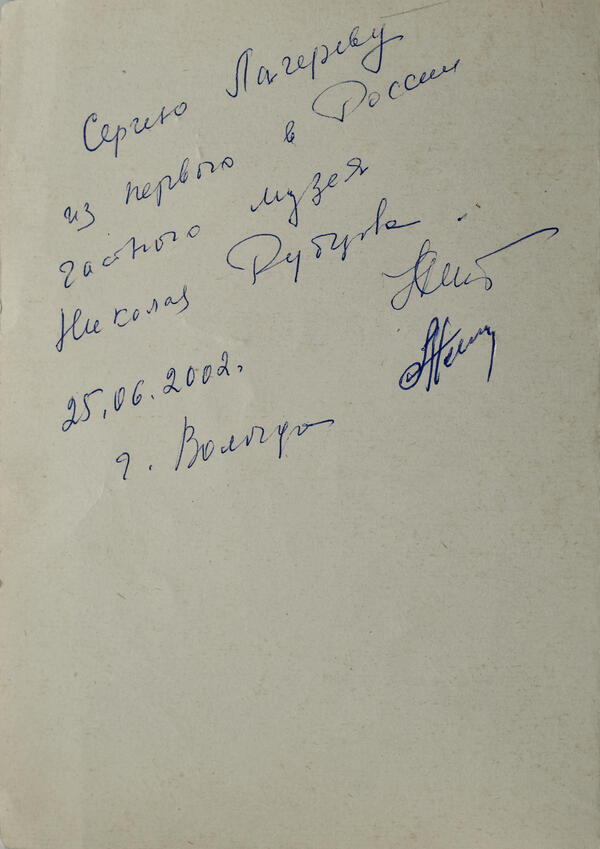 Сергею Лагереву
из первого в России
частного музея
Николая Рубцова.
25.06.2002.
г. Вологда